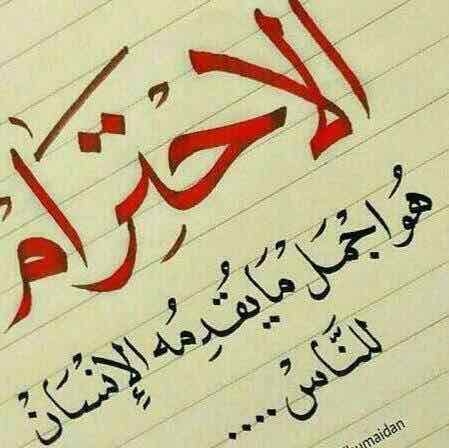 الاحْتِرَامْ
هُوَ اجْمَل مَا يُقدِمُه الإِنْسَانْ
للنَّاسْ ....